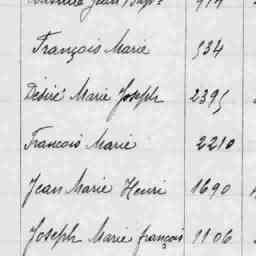 François Marie 534
Désiré Marie Joseph 2395
Francois Marie 2210
Jean Marie Henri 1690
Joseph Marie françois 1106